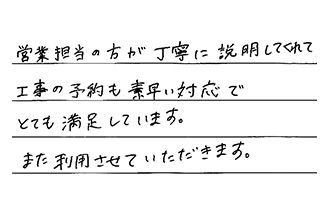 営業担当の方が丁寧に説明してくれて
工事の予約も素早い対応で
とても満足しています。
また利用させていただきます。